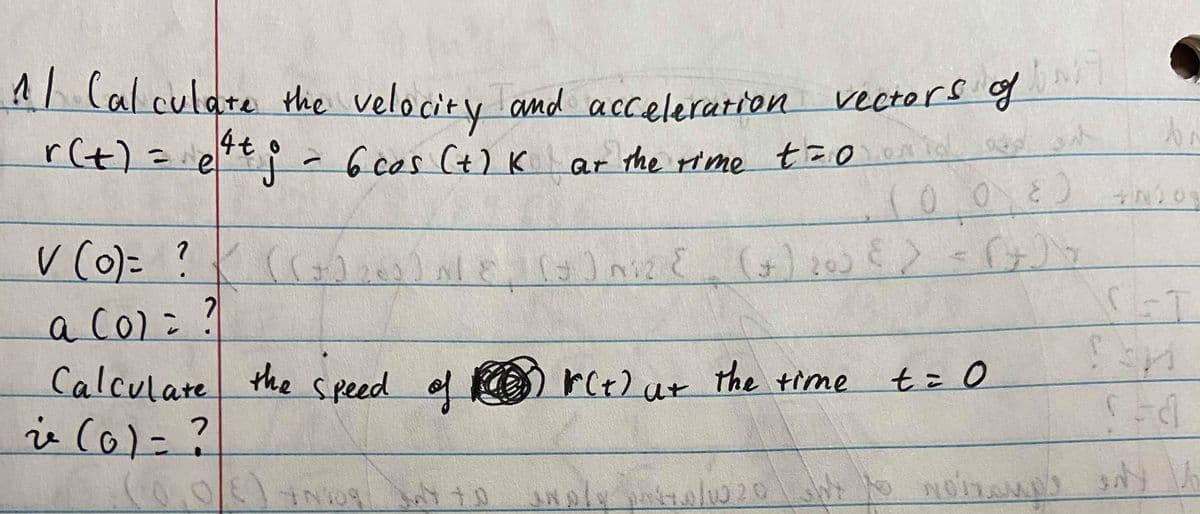 1/ Calculate the velocity and acceleration vectors of
r(t) = e^4t j - 6 cos (t) K at the time t=0
V (0)= ?
a (0) = ?
Calculate the speed of r(t) at the time t = 0
v (0) = ?